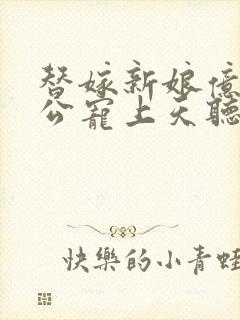 替嫁新娘億
公寵上天聽
快樂的小青蛙